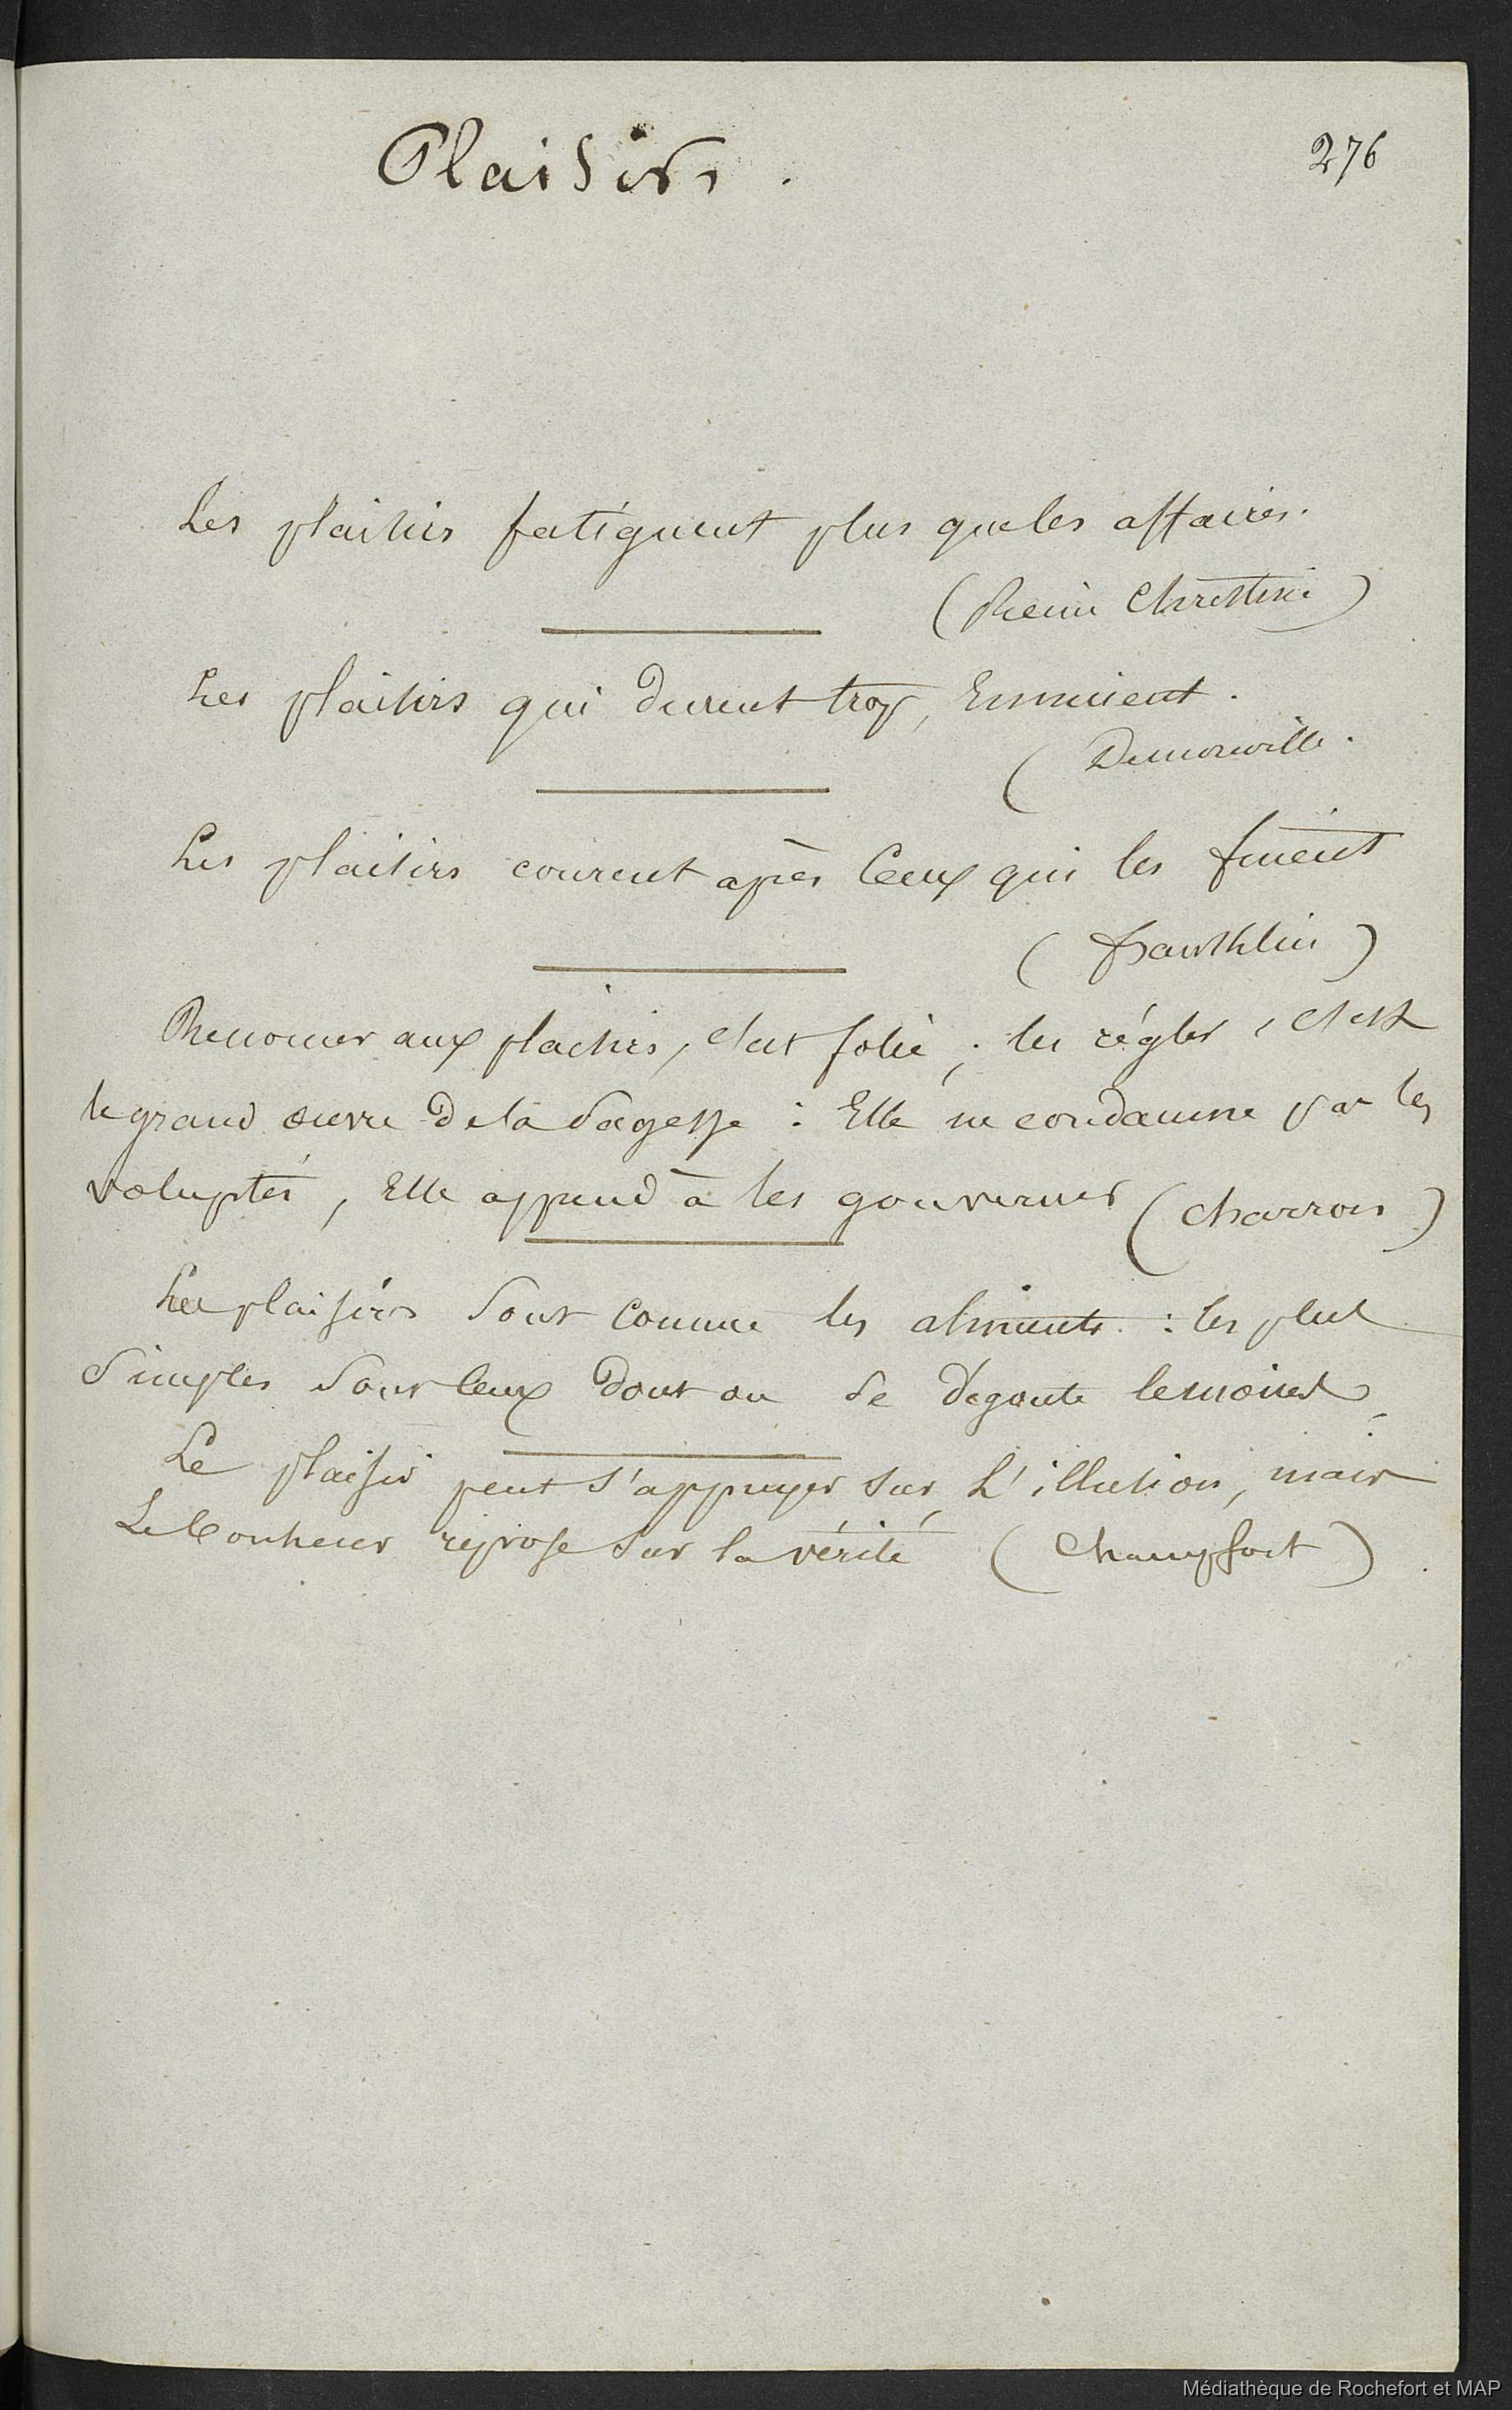 Plaisirs.
276
Les plaisirs fatiguent plus que les affaires.
(Reine Christine)
Les plaisirs qui durent trop, Ennuient.
(
Les plaisirs courent après Ceux qui les fuient
(franklin)
Renoncer aux plaisirs, c'est folie; les régler, c'est
le grand œuvre De la Sagesse : Elle ne condamne pas les
voluptés, Elle apprend à les gouverner (Charron)
Les plaisirs Sont Comme les aliments : les plus
Simples Sont Ceux Dont on Se Dégoute le moins
Le plaisir peut S'appuyer Sur L'illusion, mais
Le bonheur repose Sur la vérité (Champfort)
Médiathèque de Rochefort et MAP